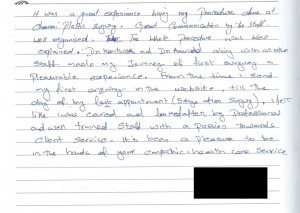 It was a great experience having my Procedure done at
Chennai Plastic Surgery. Great Communication by the staff,
well organised. The Whole Procedure was well
explained. Dr. Karthik and Dr. along with all other
staff made my Journey of first surgery a
pleasurable experience. From the time I send
my first enquiry in the website, till the
day of my last appointment (stage after surgery), I felt
like I was cared and looked after by professional
and well trained staff with a passion towards
client service. It's been a pleasure to be
in the hands of your empathic health care service